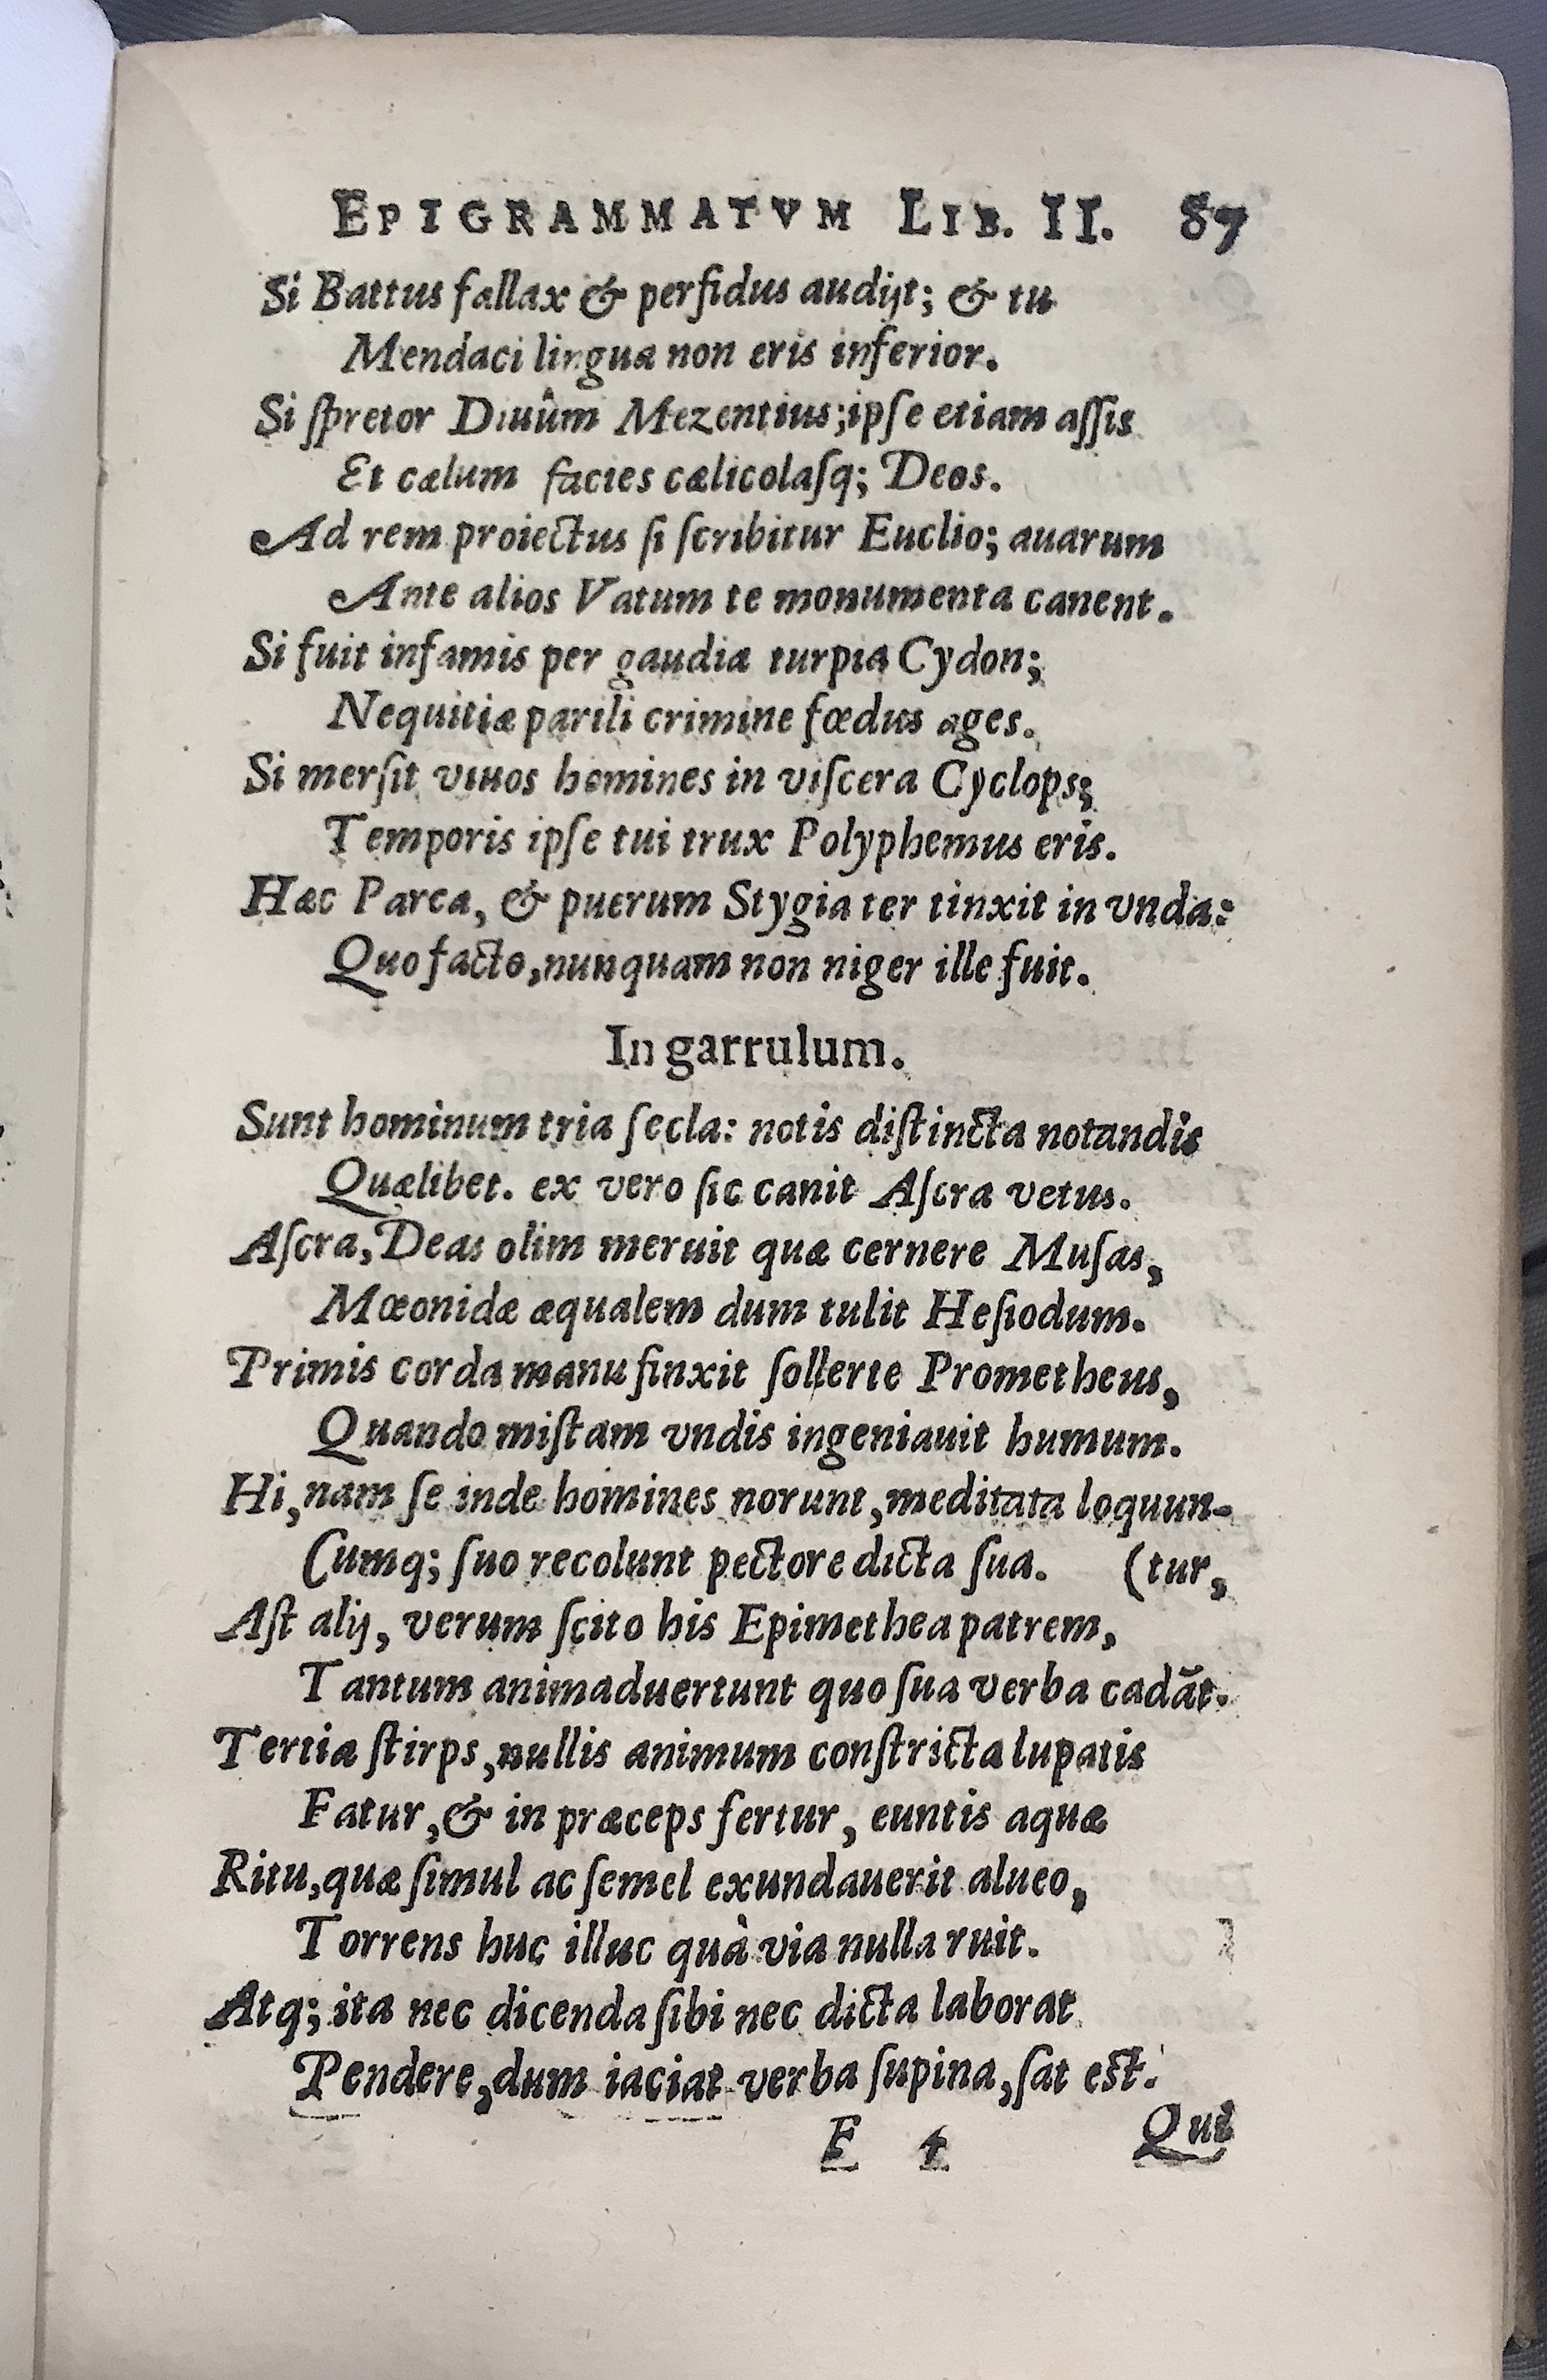 EPIGRAMMATVM LIB. II. 87
Si Battus fallax & perfidus audijt; & tu
Mendaci lingua non eris inferior.
Si ſpretor Diuûm Mezentius; ipſe etiam aſſis
Et cælum facies cælicolaſq; Deos.
Ad rem proiectus ſi ſcribitur Euclio; auarum
Ante alios Vatum te monumenta canent.
Si fuit infamis per gaudia turpia Cydon;
Nequitiæ parili crimine fœdus ages.
Si merſit viuos homines in viſcera Cyclops;
Temporis ipſe tui trux Polyphemus eris.
Hæc Parca, & puerum Stygia ter tinxit in vnda:
Quo facto, nunquam non niger ille fuit.
In garrulum.
Sunt hominum tria ſecla: notis diſtincta notandis
Quælibet. ex vero ſic canit Aſcra vetus.
Aſcra, Deas olim meruit quæ cernere Muſas,
Mœonidæ æqualem dum tulit Heſiodum.
Primis corda manu finxit ſollerte Prometheus,
Quando miſtam vndis ingeniauit humum.
Hi, nam ſe inde homines norunt, meditata loquun-
Cumq; ſuo recolunt pectore dicta ſua. (tur,
Aſt alij, verum ſcito his Epimethea patrem,
Tantum animaduertunt quo ſua verba cadāt.
Tertia ſtirps, nullis animum conſtricta lupatis
Fatur, & in præceps fertur, euntis aquæ
Ritu, quæ ſimul ac ſemel exundauerit alueo,
Torrens huc illuc quà via nulla ruit.
Atq; ita nec dicenda ſibi nec dicta laborat
Pendere, dum iaciat verba ſupina, ſat eſt.
F 4 Qui